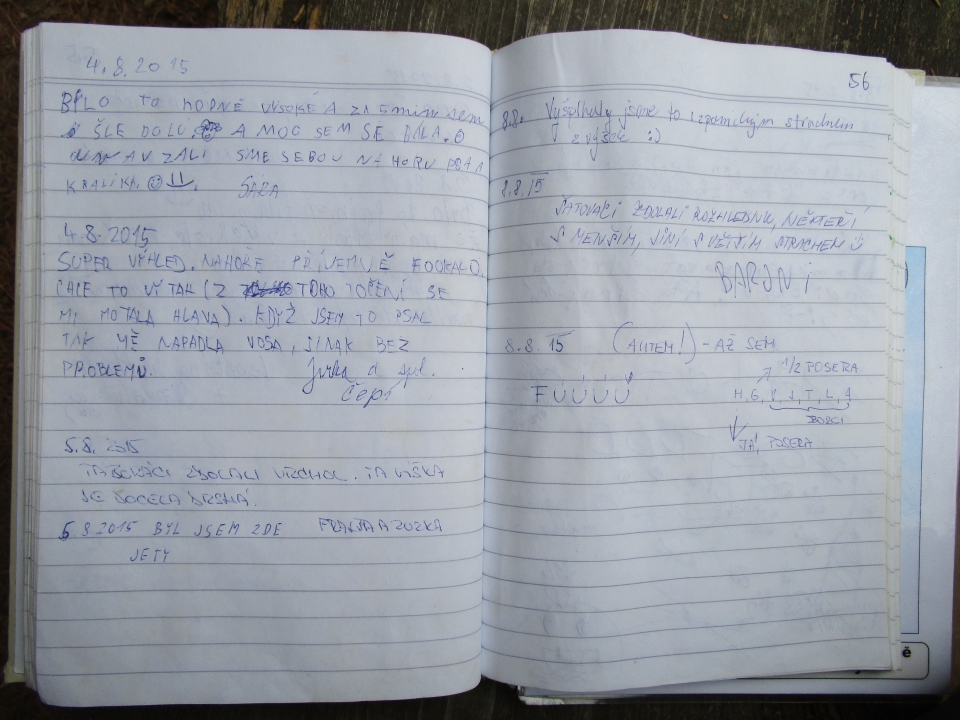 4.8.2015
BYLO TO HODNĚ VYSOKÉ A ZA 5 MIN SEM
ŠLE DOLŮ A MOC SEM SE BÁLA. O
VZALI SME SEBOU NAHORU
KRÁLÍKA. SÁRA
4.8.2015
SUPER VÝHLED. NAHOŘE PŘÍJEMNĚ FOUKALO.
CHCE TO VÝTAH (Z TOHO TOČENÍ SE
MI MOTALA HLAVA). KDYŽ JSEM TO PSAL
TAK MĚ NAPADLA VOSA, JINAK BEZ
PROBLEMŮ. Jirka a spol.
Čápi
5.8.2015
ZDOLALI VRCHOL. TA VÝŠKA
JE DOCELA DRSNÁ.
5.8.2015 BYL JSEM ZDE FRANJA A ZUZKA
JETY
56
8.8. Vyšplhaly jsme to s strachem
z výšek :)
8.8.15
ŠÁTOVÁCI ZDOLALI ROZHLEDNU, NĚKTEŘÍ
S MENŠÍM, JINÍ S VĚTŠÍM STRACHEM
8.8.15 (AUTEM!) - AŽ SEM
1/2 POSERA
FÚÚÚÚ H, G, V, J, T, L, A
BORCI
JÁ, POSERA
ě